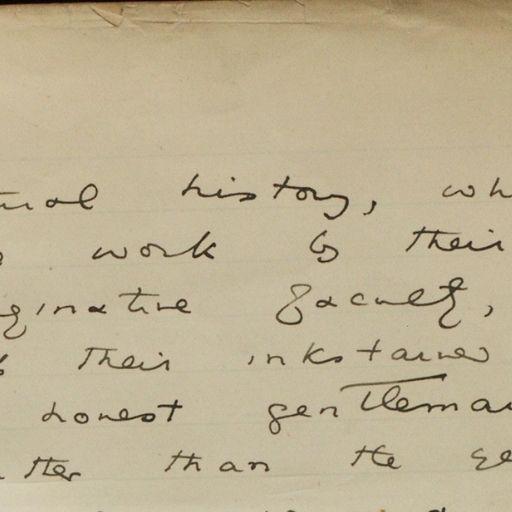 tural history, wh
work by their
aginative faculty,
their inkstained
honest gentleman
tter than the ge